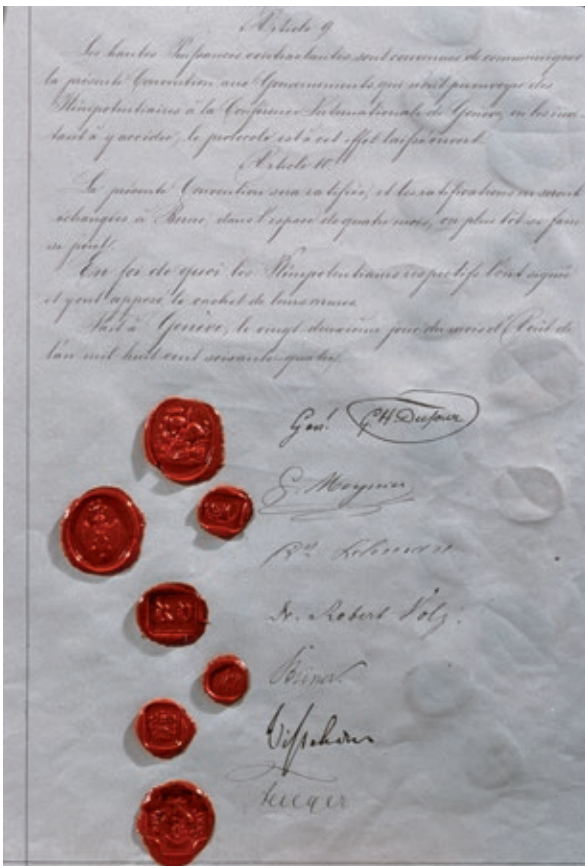 Article 9
Les hautes Puissances contractantes sont convenues de communiquer
la présente Convention aux Gouvernements qui n'ont pu envoyer des
Plénipotentiaires à la Conférence Internationale de Genève, en les invi-
tant à y accéder; le protocole est à cet effet laissé ouvert.
Article 10
La présente Convention sera ratifiée, et les ratifications en seront
échangées à Berne, dans l'espace de quatre mois, ou plus tôt si faire
se peut.
En foi de quoi les Plénipotentiaires respectifs l'ont signée
et y ont apposé le cachet de leurs armes.
Fait à Genève, le vingt deuxième jour du mois d'Août de
l'an mil huit cent soixante-quatre.
Genl. G H Dufour
G. Moynier
Lehmann
Dr. Robert Volz.
Steiner.
Visschers